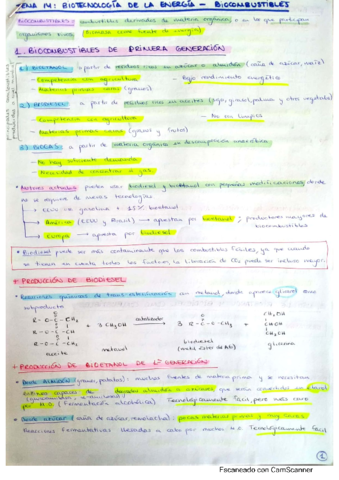 TEMA 14: BIOTECNOLOGÍA DE LA ENERGÍA - BIOCOMBUSTIBLES
BIOCOMBUSTIBLES: combustibles derivados de materia orgánica, o en los que participan
organismos vivos (Biomasa como fuente de energía)
1. BIOCOMBUSTIBLES DE PRIMERA GENERACIÓN
1) BIOETANOL: a partir de residuos ricos en azúcares o almidón (caña de azúcar, maíz)
- Competencia con agricultura - Bajo rendimiento energético
- Materias primas caras (granos)
2) BIODIESEL: a partir de residuos ricos en aceites (soja, girasol, palma y otros vegetales)
- Competencia con agricultura - No es limpio
- Materias primas caras (girasol y
3) BIOGAS: a partir de materia orgánica en descomposición anaeróbica
- No hay suficiente demanda
- Necesidad de convertir a gas
• Motores actuales pueden usar biodiesel y bioetanol con pequeñas modificaciones, donde
no se requiere de nuevas tecnologías
→ EEUU → gasolina + 15% bioetanol
→ América (EEUU y Brasil) → apuestan por bioetanol; productores mayores de
biocombustibles
→ Europa → apuesta por biodiesel
• Biodiesel puede ser más contaminante que los combustibles fósiles, ya que cuando
se tienen en cuenta todos los factores, la liberación de CO₂ puede ser incluso mayor.
* PRODUCCIÓN DE BIODIESEL
• Reacciones químicas de trans-esterificación con metanol, donde aparece glicerol como
subproducto
R-O-C-CH₃
R-O-C-CH₃ + 3 CH₃OH catalizador → 3 R-O-C-CH₃ +
R-O-C-CH₃
CH₂OH
CHOH
CH₂OH
aceite metanol biodiesel glicerina
* PRODUCCIÓN DE BIOETANOL DE 1ª GENERACIÓN
• Desde almidón (granos, patatas): muchas fuentes de materia prima y se necesitan
enzimas capaces de degradar almidón a azúcares, que serán convertidos en etanol
por m.o. (Fermentación alcohólica). Tecnológicamente fácil, pero más caro
• Desde azúcar (caña de azúcar, remolacha): pocas materias primas y muy caras.
Reacciones fermentativas llevadas a cabo por m.o. Tecnológicamente fácil
1
Escaneado con CamScanner